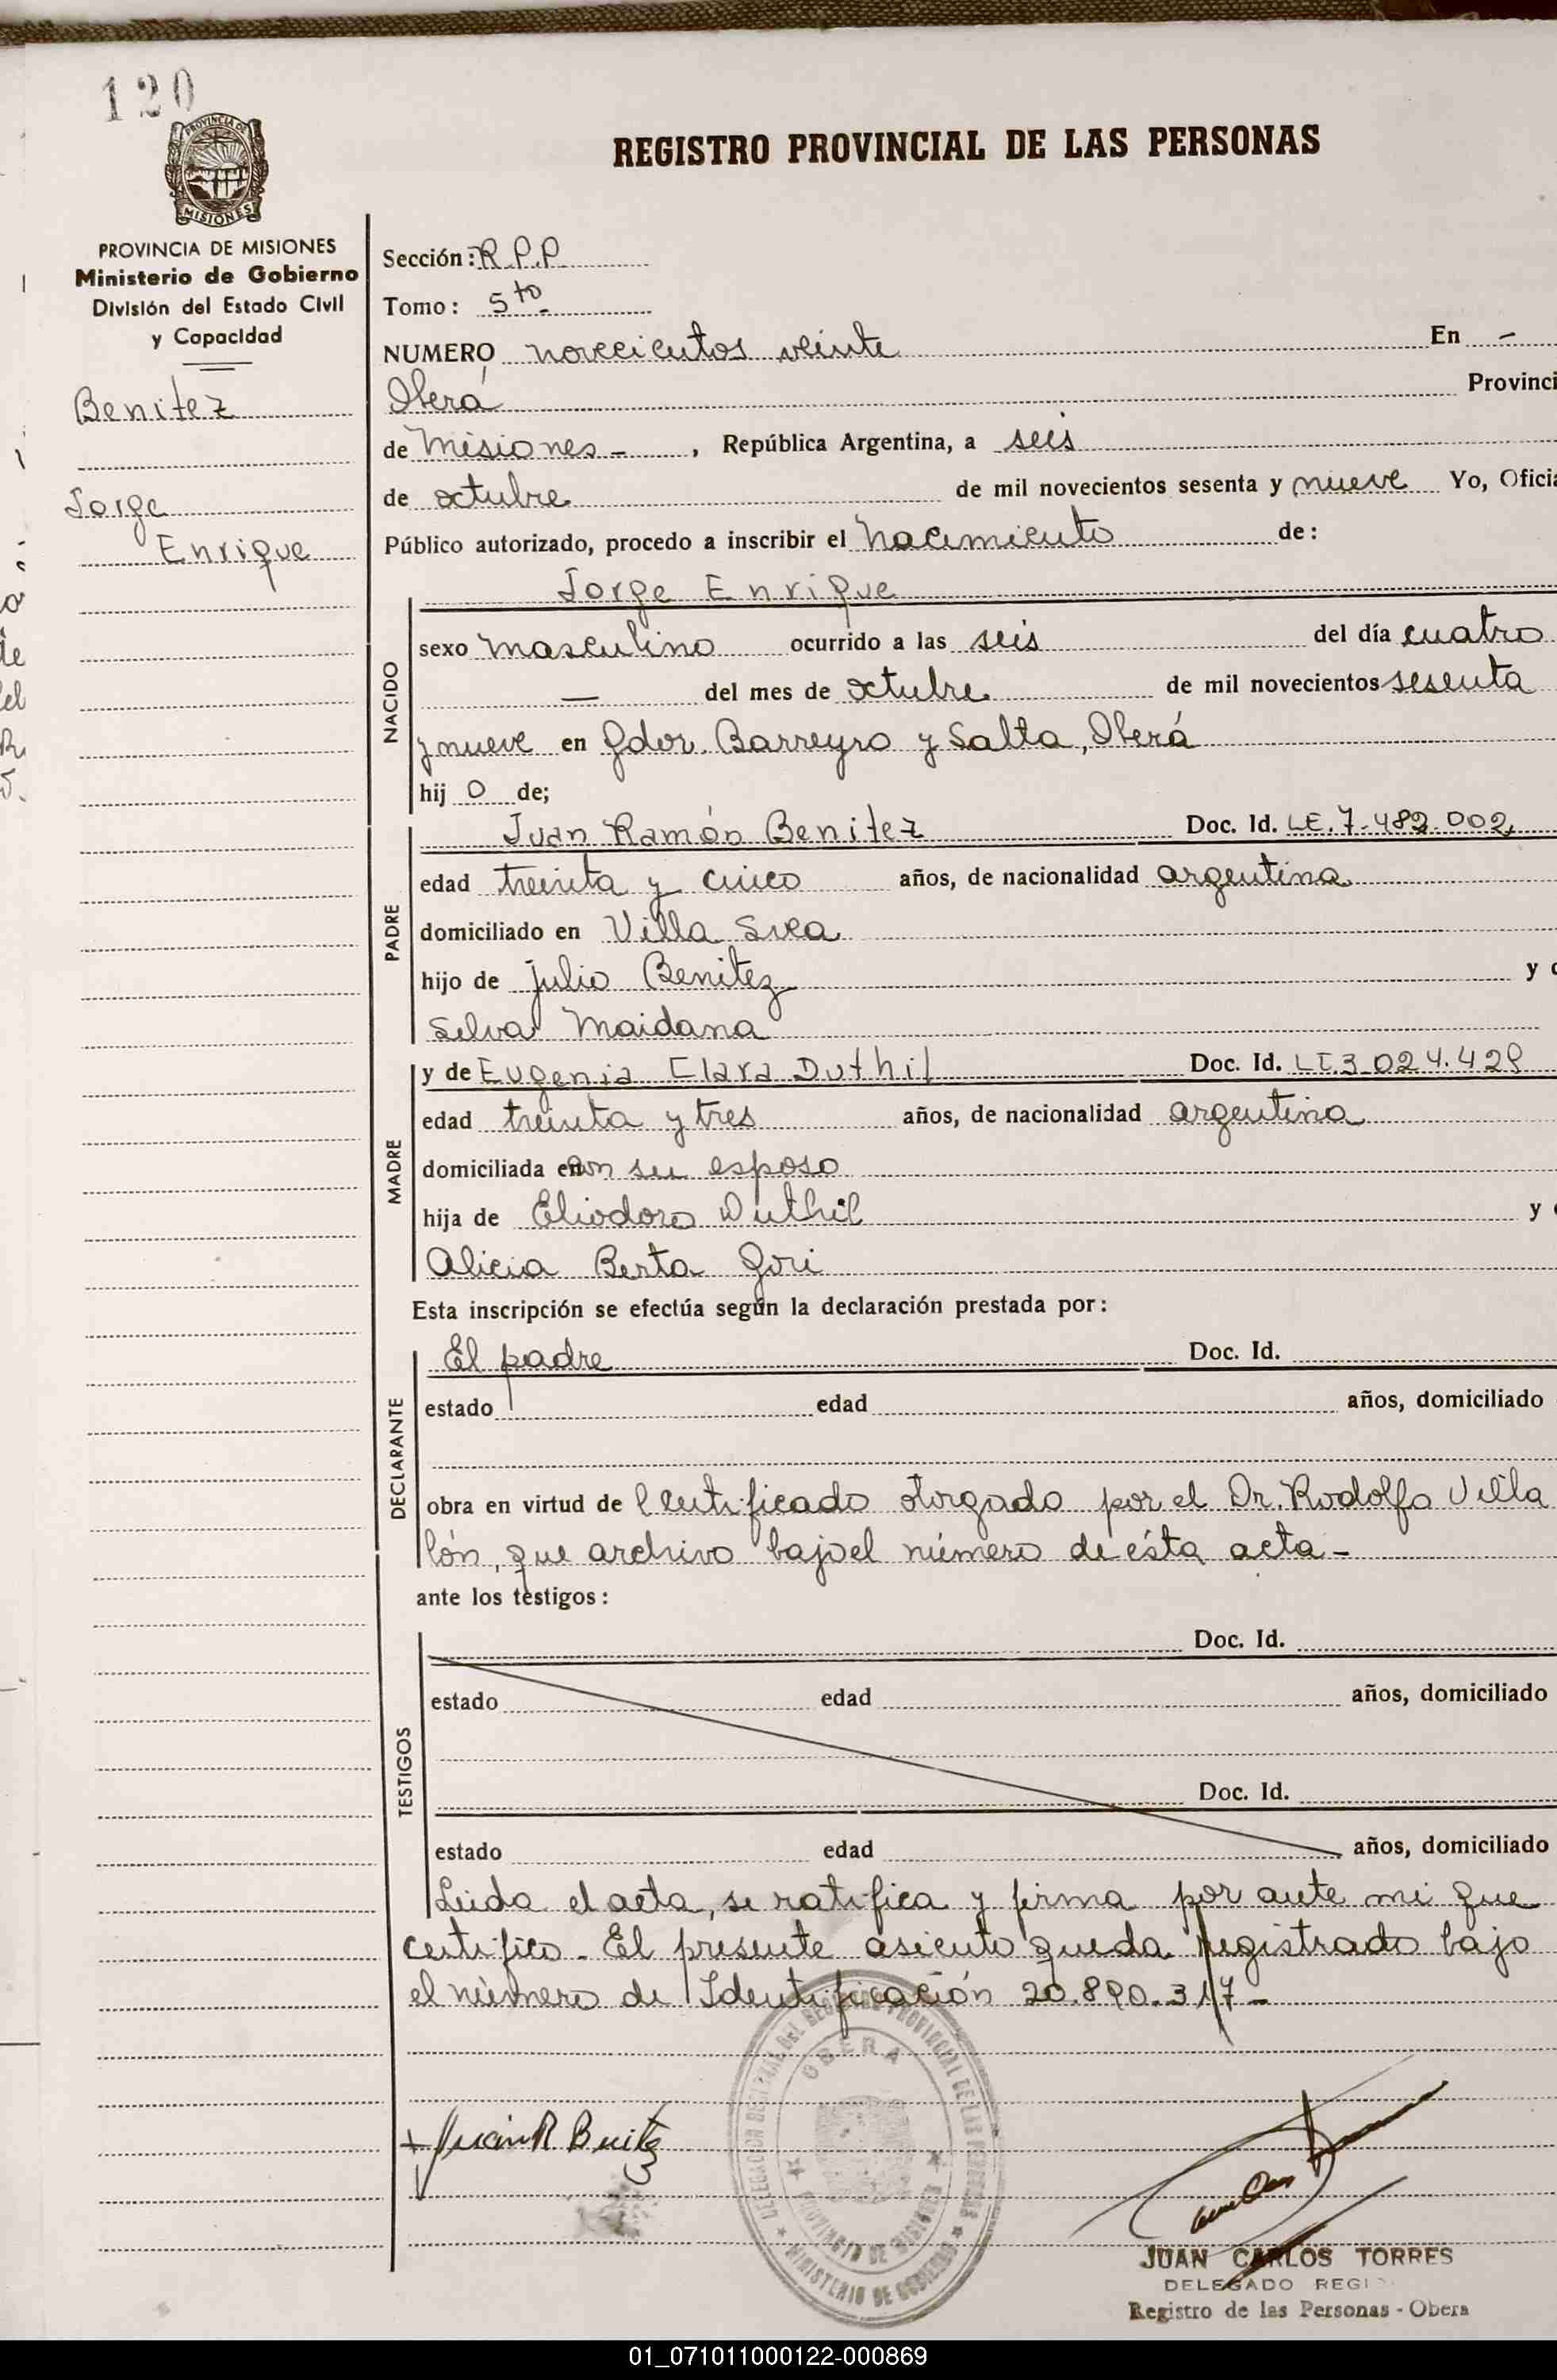 120
PROVINCIA DE
MISIONES
REGISTRO PROVINCIAL DE LAS PERSONAS
PROVINCIA DE MISIONES
Ministerio de Gobierno
División del Estado Civil
y Capacidad
Benitez
Jorge
Enrique
Sección: R.P.P
Tomo: 5to
NUMERO novecientos veinte En -
Oberá Provinci
de Misiones - , República Argentina, a seis
de octubre de mil novecientos sesenta y nueve Yo, Oficia
Público autorizado, procedo a inscribir el nacimiento de:
Jorge Enrique
NACIDO
sexo masculino ocurrido a las seis del día cuatro
— del mes de octubre de mil novecientos sesenta
y nueve en Gdor. Barreyro y Salta, Oberá
hij o de;
PADRE
Juan Ramón Benitez Doc. Id. LE. 7.482.002
edad treinta y cinco años, de nacionalidad argentina
domiciliado en Villa Svea
hijo de Julio Benitez y
Selva Maidana
MADRE
y de Eugenia Clara Duthil Doc. Id. LC.3.024.429
edad treinta y tres años, de nacionalidad argentina
domiciliada en con su esposo
hija de Eliodoro Duthil y
Alicia Berta Gori
Esta inscripción se efectúa según la declaración prestada por:
DECLARANTE
El padre Doc. Id.
estado edad años, domiciliado
obra en virtud de Certificado otorgado por el Dr. Rodolfo Villa
lón, que archivo bajo el número de ésta acta -
ante los testigos:
TESTIGOS
Doc. Id.
estado edad años, domiciliado
Doc. Id.
estado edad años, domiciliado
Leida el acta, se ratifica y firma por ante mi que
certifico - El presente asiento queda registrado bajo
el número de Identificación 20.890.317 -
Juan R Benitez
OBERA
PROVINCIA DE MISIONES
MINISTERIO DE GOBIERNO
JUAN CARLOS TORRES
DELEGADO REGI
Registro de las Personas - Obera
01_071011000122-000869